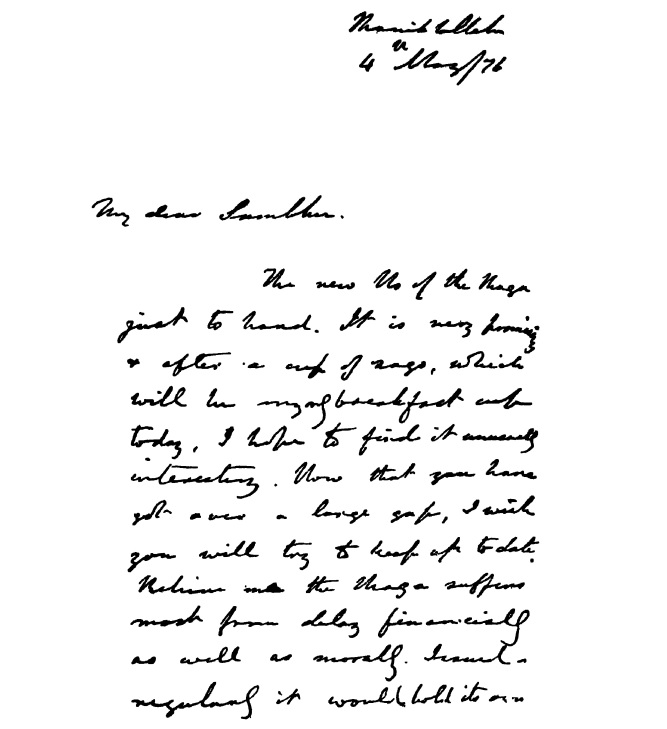 4th May/76
My dear Sambhu.
The new No of the Maga
just to hand. It is very
& after a cup of sago, which
will be my breakfast
today, I hope to find it unusually
interesting. Now that you have
got over a large gap, I wish
you will try to keep up to date.
Believe me the Maga suffers
most from delay financially
as well as morally. Issued
regularly it would hold its own